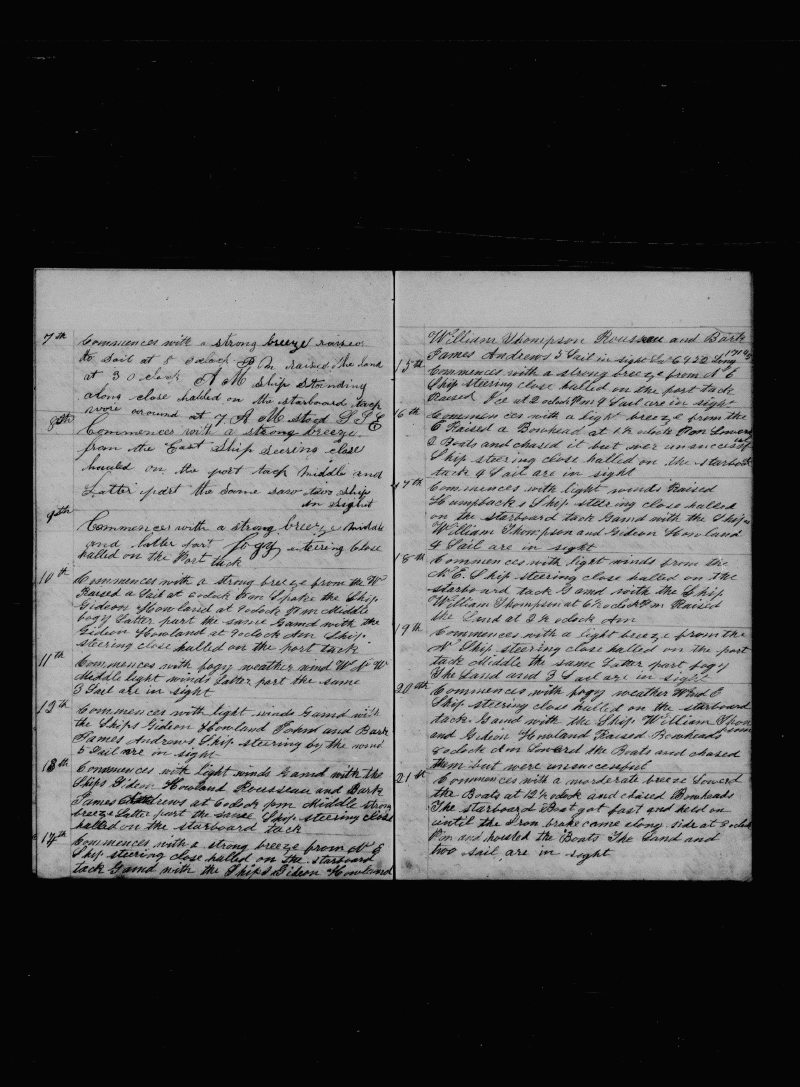 7th Commences with a strong breeze raised
to Sail at 8 oclock P M raised the land
at 3 O clock A M Ship Standing
along close halled on the starboard tack
wore around at 7 A M stood S S E
8th Commences with a strong breeze
from the East Ship steering close
hauled on the port tack Middle and
Latter part the Same saw two Ship
in Sight
9th Commences with a strong breeze Middle
and latter part fogy steering Close
halled on the Port tack
10th Commences with a strong breeze from the W
Raised a Sail at oclock Pm Spoke the Ship
Gideon Howland at 9 oclock P.m Middle
fogy Latter part the same Gamd with the
Gideon Howland at 9 oclock Am Ship
steering close halled on the port tack
11th Commences with fogy weather wind W N W
Middle light winds Latter part the same
3 Sail are in sight
12th Commences with light winds Gamd with
the Ships Gideon Howland and Bark
James Andrews Ship steering by the wind
5 Sail are in sight
13th Commences with light winds Gamd with the
Ships Gideon Howland Rousseau and Bark
James Andrews at 6 oclock pm Middle strong
breeze Latter part the same Ship steering close
halled on the starboard tack
14th Commences with a strong breeze from N E
Ship steering close halled on the starboard
tack Gamd with the Ships Gideon Howland
William Thompson Rousseau and Bark
James Andrews 5 Sail in sight Long
15th Commences with a strong breeze from N E
Ship steering close halled on the port tack
Raised Ice at 2 oclock Pm 9 Sail are in sight
16th Commences with a light breeze from the
E Raised a Bowhead at 1½ oclock P.m Lowerd
2 Boats and chased it but wer unsuccessful
Ship steering close halled on the starboard
tack 9 Sail are in sight
17th Commences with light winds Raised
Humpbacks Ship steering close halled
on the starboard tack Gamd with the Ships
William Thompson and Gideon Howland
4 Sail are in sight
18th Commences with light winds from the
N.E. Ship steering close halled on the
starboard tack Gamd with the Ship
William Thompson at 6½ oclock Pm Raised
the Land at 2½ oclock Am
19th Commences with a light breeze from the
N Ship steering close halled on the port
tack Middle the same Latter part fogy
The Land and 3 Sail are in sight
20th Commences with fogy weather Wind E
Ship steering close halled on the starboard
tack Gamd with the Ship William Thomson
and Gideon Howland Raised Bowheads
oclock Am Lowerd the Boats and chased
them but were unsuccessful
21st Commences with a morderate breeze Lowerd
the Boats at 12½ oclock and chased Bowheads
The Starboard Boat got fast and held on
until the Iron broke came along side at 8 oclock
P.m and hoisted the Boats The Land and
two sail are in sight